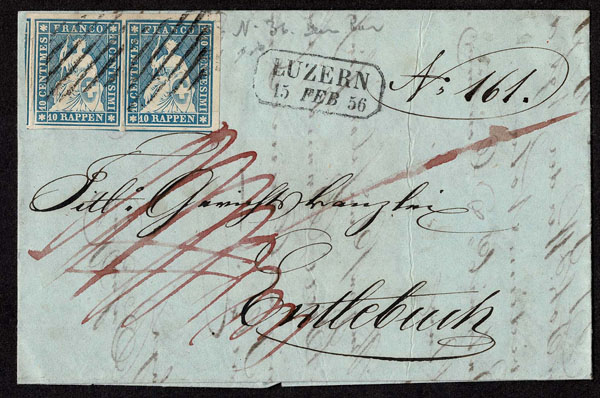 FRANCO FRANCO
10 CENTIMES 10 CENTESIMI 10 CENTIMES 10 CENTESIMI
10 RAPPEN 10 RAPPEN
LUZERN
15 FEB 56
N: 161.
Titl: Gerichtskanzlei
Entlebuch